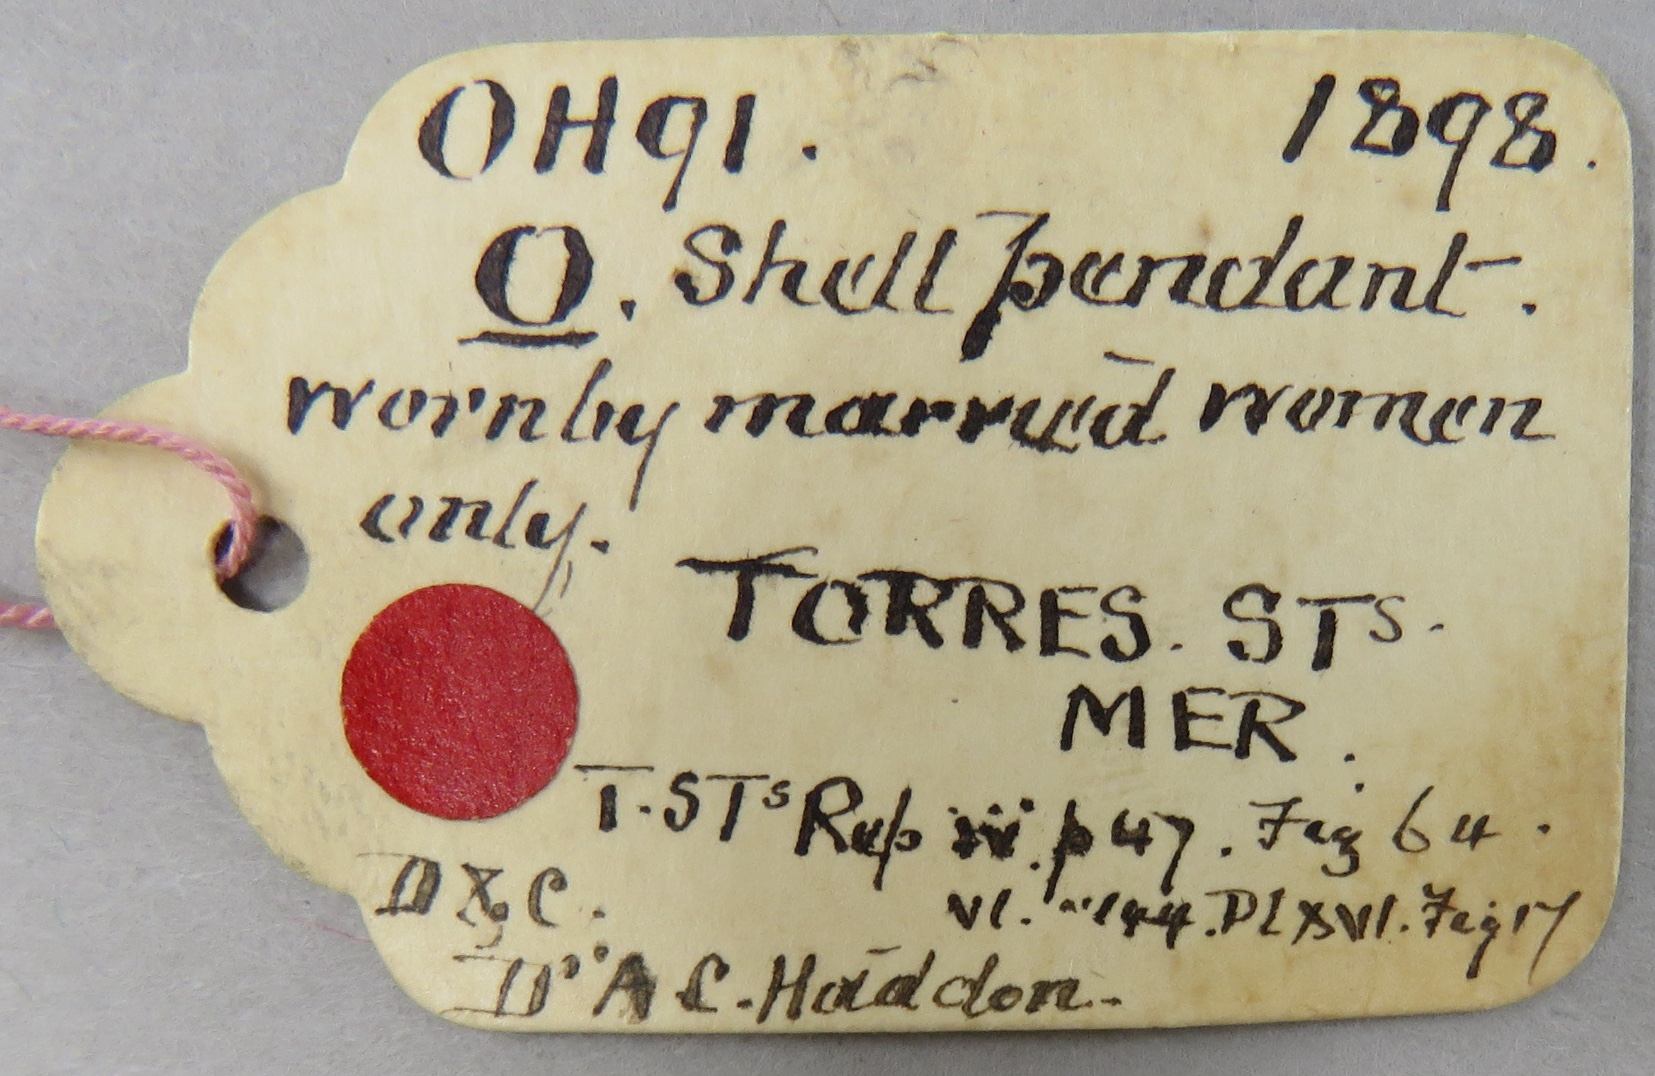 OH91. 1898.
O. Shell pendant.
worn by married women
only.
TORRES. STs.
MER.
T. STs Rep iv. p 47. Fig 64.
D & C. vi. " 144. Pl XVI. Fig 17
Dr A C. Haddon.